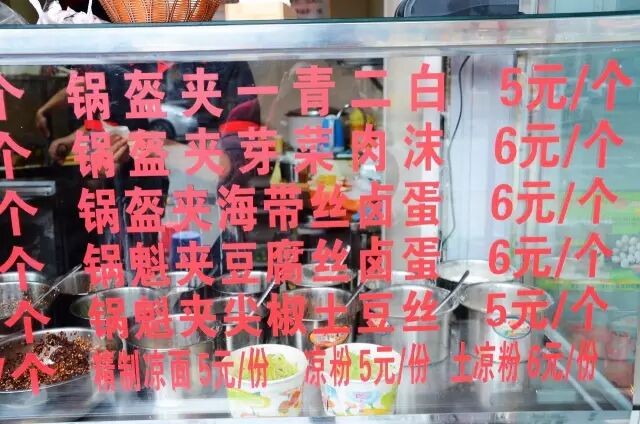 个 锅盔夹一青二白 5元/个
个 锅盔夹芽菜肉沫 6元/个
个 锅盔夹海带丝卤蛋 6元/个
个 锅魁夹豆腐丝卤蛋 6元/个
个 锅魁夹尖椒土豆丝 5元/个
/个 精制凉面 5元/份 凉粉 5元/份 土凉粉 6元/份